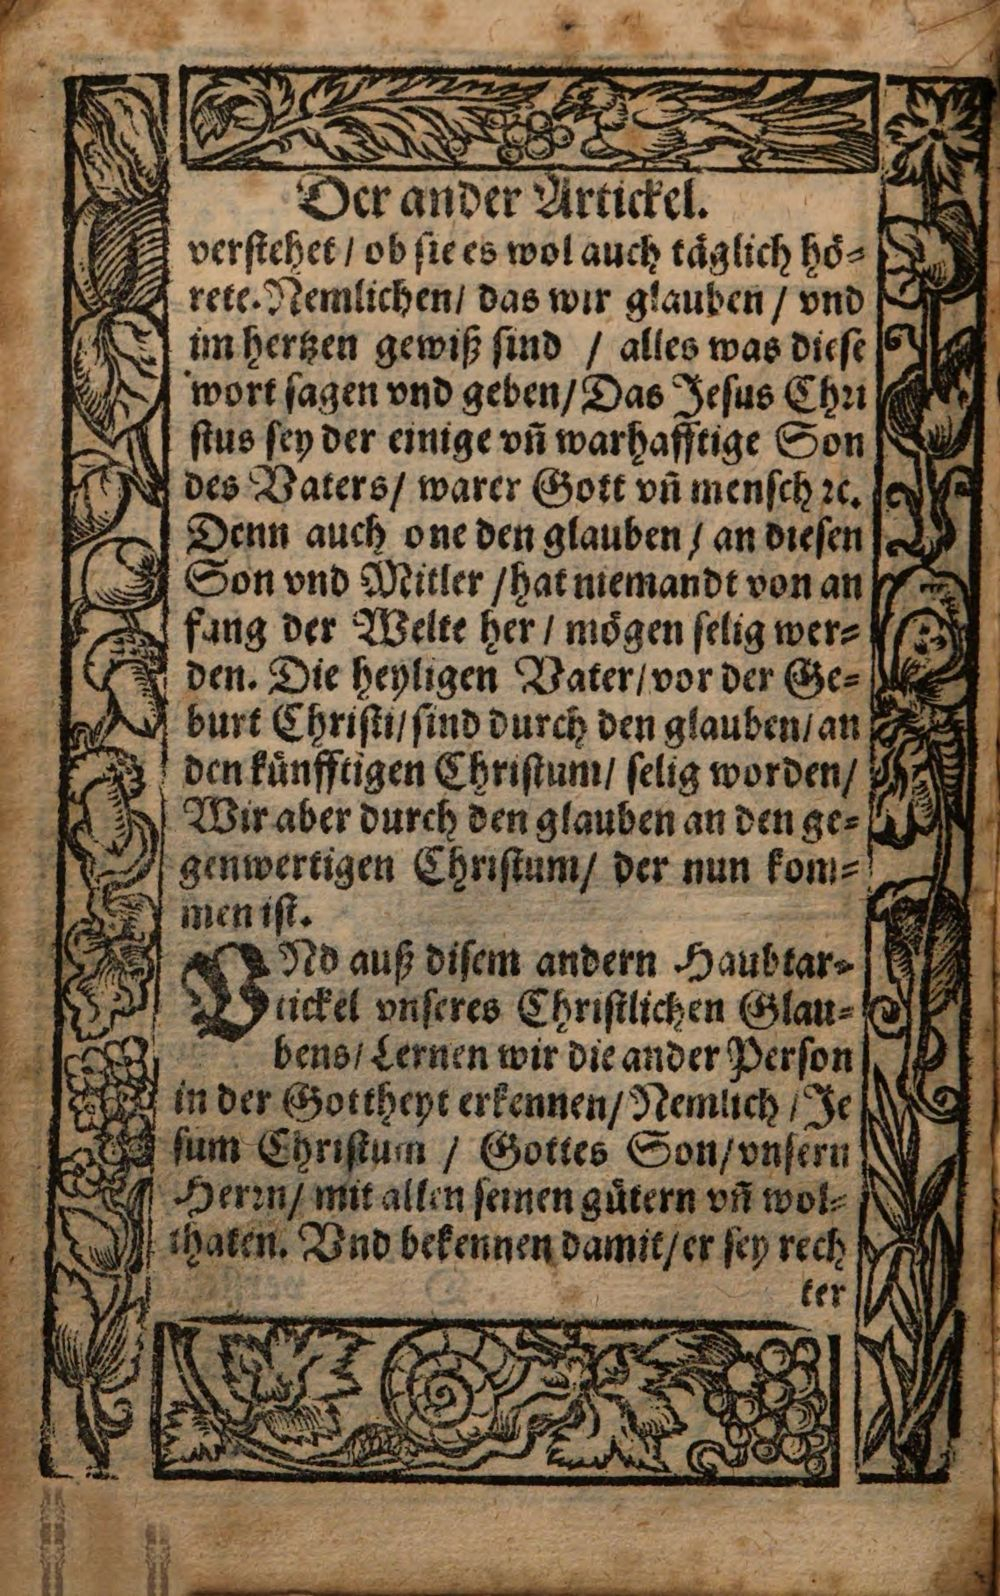 Der ander Artickel.
verstehet / ob sie es wol auch täglich hö-
rete. Nemlichen / das wir glauben / vnd
im hertzen gewiß sind / alles was diese
wort sagen vnd geben / Das Jesus Chri
stus sey der einige vn̄ warhafftige Son
des Vaters / warer Gott vn̄ mensch ꝛc.
Denn auch one den glauben / an diesen
Son vnd Mitler / hat niemandt von an
fang der Welte her / mögen selig wer-
den. Die heyligen Vater / vor der Ge-
burt Christi / sind durch den glauben / an
den künfftigen Christum / selig worden /
Wir aber durch den glauben an den ge-
genwertigen Christum / der nun kom-
men ist.
VNd auß disem andern Haubtar-
tickel vnseres Christlichen Glau-
bens / Lernen wir die ander Person
in der Gottheyt erkennen / Nemlich / Je
sum Christum / Gottes Son / vnsern
Herrn / mit allen seinen gütern vn̄ wol-
thaten. Vnd bekennen damit / er sey rech
ter